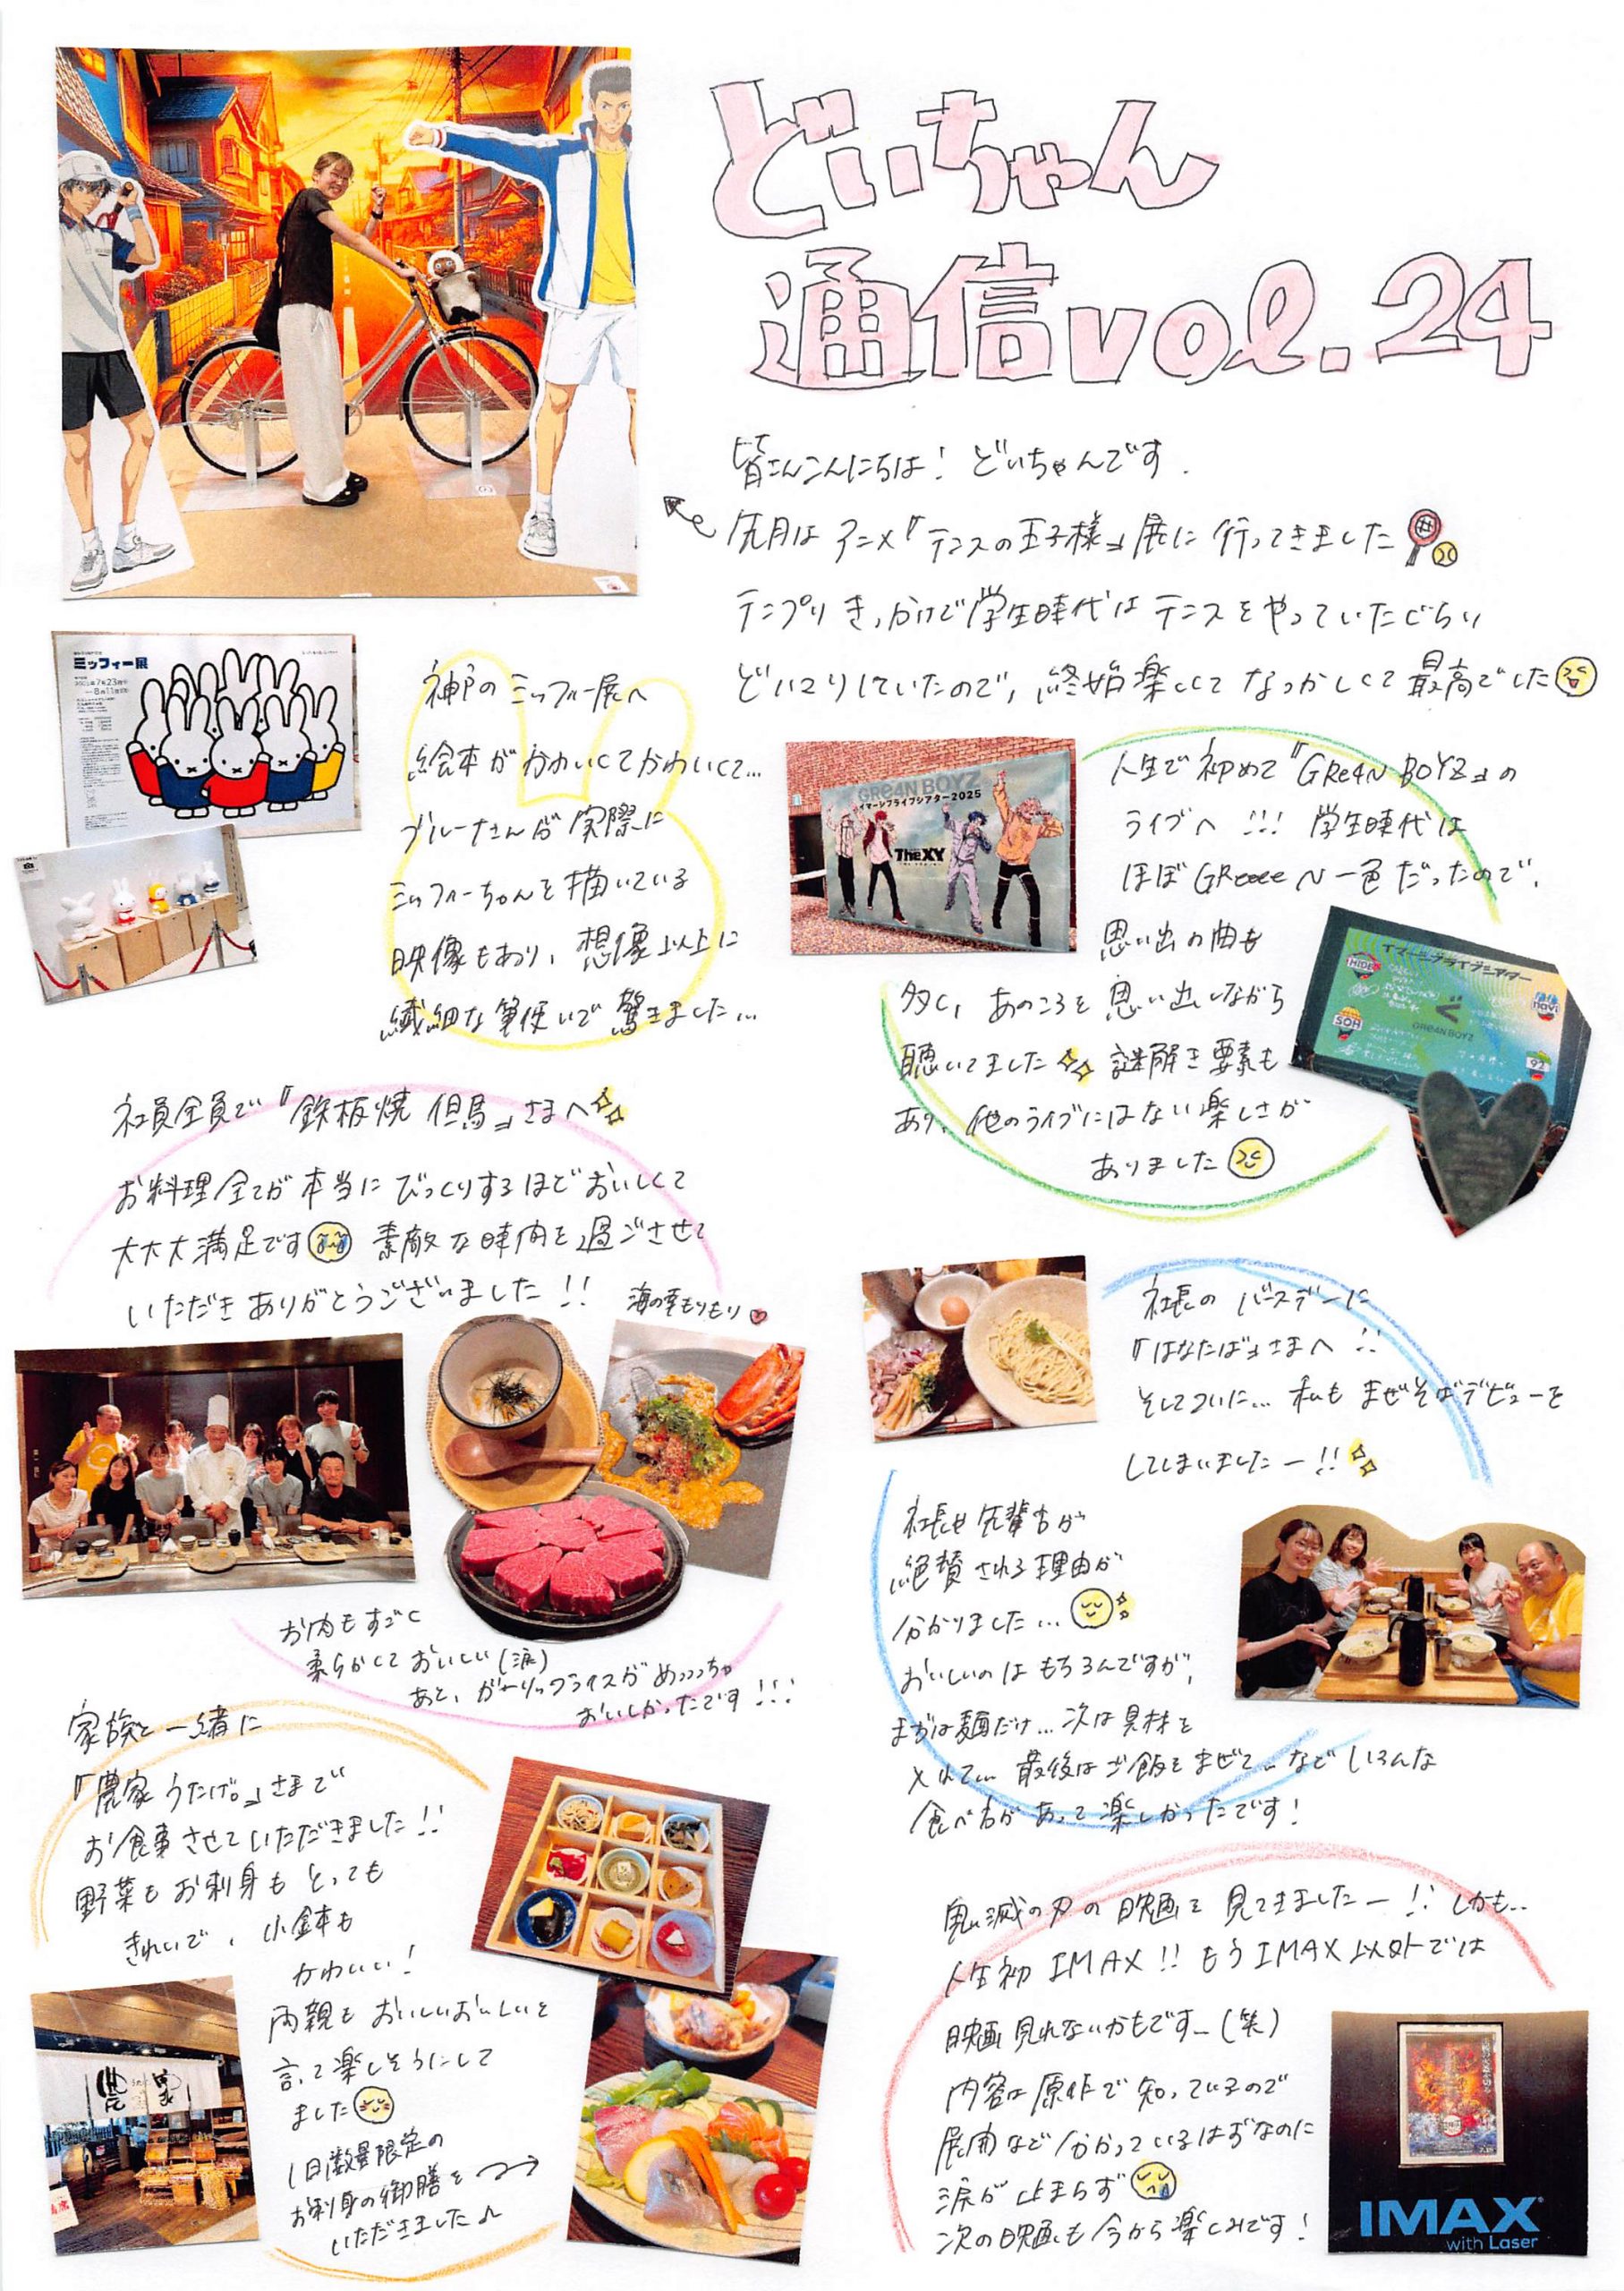 どいちゃん
通信vol.24
皆さんこんにちは！どいちゃんです.
先月はアニメ『テニスの王子様』展に行ってきました
テニプリきっかけで学生時代はテニスをやっていたぐらい
どハマりしていたので、終始楽しくてなつかしくて最高でした
ミッフィー展
7月23日
8月11日
神戸のミッフィー展へ
絵本がかわいくてかわいくて…
ブルーナさんが実際に
ミッフィーちゃんを描いている
映像もあり、想像以上に
繊細な筆使いで驚きました…
GRe4N BOYZ
イマーシブライブシアター2025
TheXY
人生で初めて『GRe4N BOYZ』の
ライブへ!!! 学生時代は
ほぼGReeeeN一色だったので、
思い出の曲も
多く、あのころを思い出しながら
聴いてました 謎解き要素も
あり、他のライブにはない楽しさが
ありました
イマーシブライブシアター
HIDE
navi
GRe4N BOYZ
SOH
92
社員全員で『鉄板焼 但馬』さまへ
お料理全てが本当にびっくりするほどおいしくて
大大大満足です 素敵な時間を過ごさせて
いただきありがとうございました!!
海の幸もりもり
お肉もすごく
柔らかくておいしい(涙)
あと、ガーリックライスがめっっっちゃ
おいしかったです!!!
社長のバースデーに
『はなたば』さまへ!!
そしてついに…私もまぜそばデビューを
してしまいましたー!!
社長や先輩方が
絶賛される理由が
分かりました…
おいしいのはもちろんですが、
まずは麺だけ…次は具材を
入れて…最後はご飯をまぜて…などいろんな
食べ方があって楽しかったです！
家族と一緒に
『農家 うたげ。』さまで
お食事させていただきました!!
野菜もお刺身もとっても
きれいで、小鉢も
かわいい！
両親もおいしいおいしいと
言って楽しそうにして
ました
1日数量限定の
お刺身の御膳を
いただきました♪
農家
鬼滅の刃の映画を見てきましたー!! しかも…
人生初IMAX!! もうIMAX以外では
映画見れないかもです…(笑)
内容は原作で知っているので
展開など分かっているはずなのに
涙が止まらず
次の映画も今から楽しみです！
IMAX
with Laser